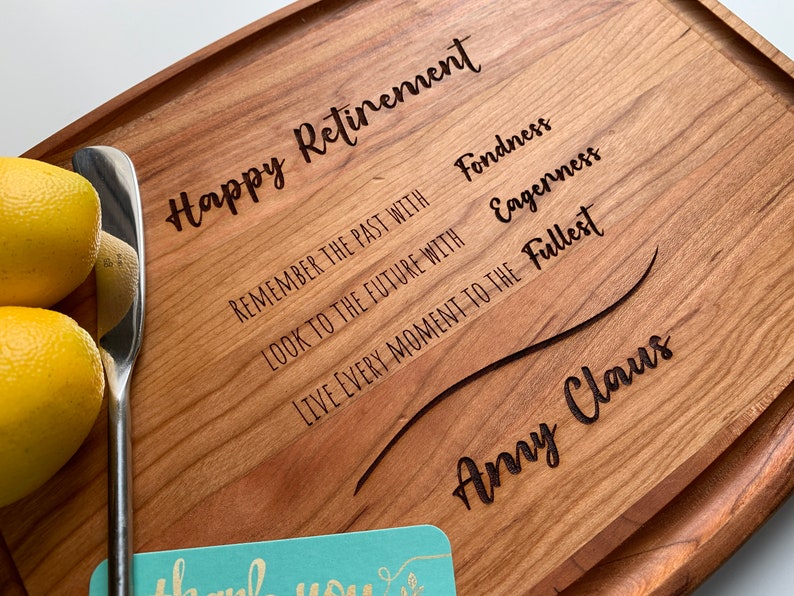 Happy Retirement
Remember the past with Fondness
Look to the future with Eagerness
Live Every moment to the Fullest
Amy Claus
thank you